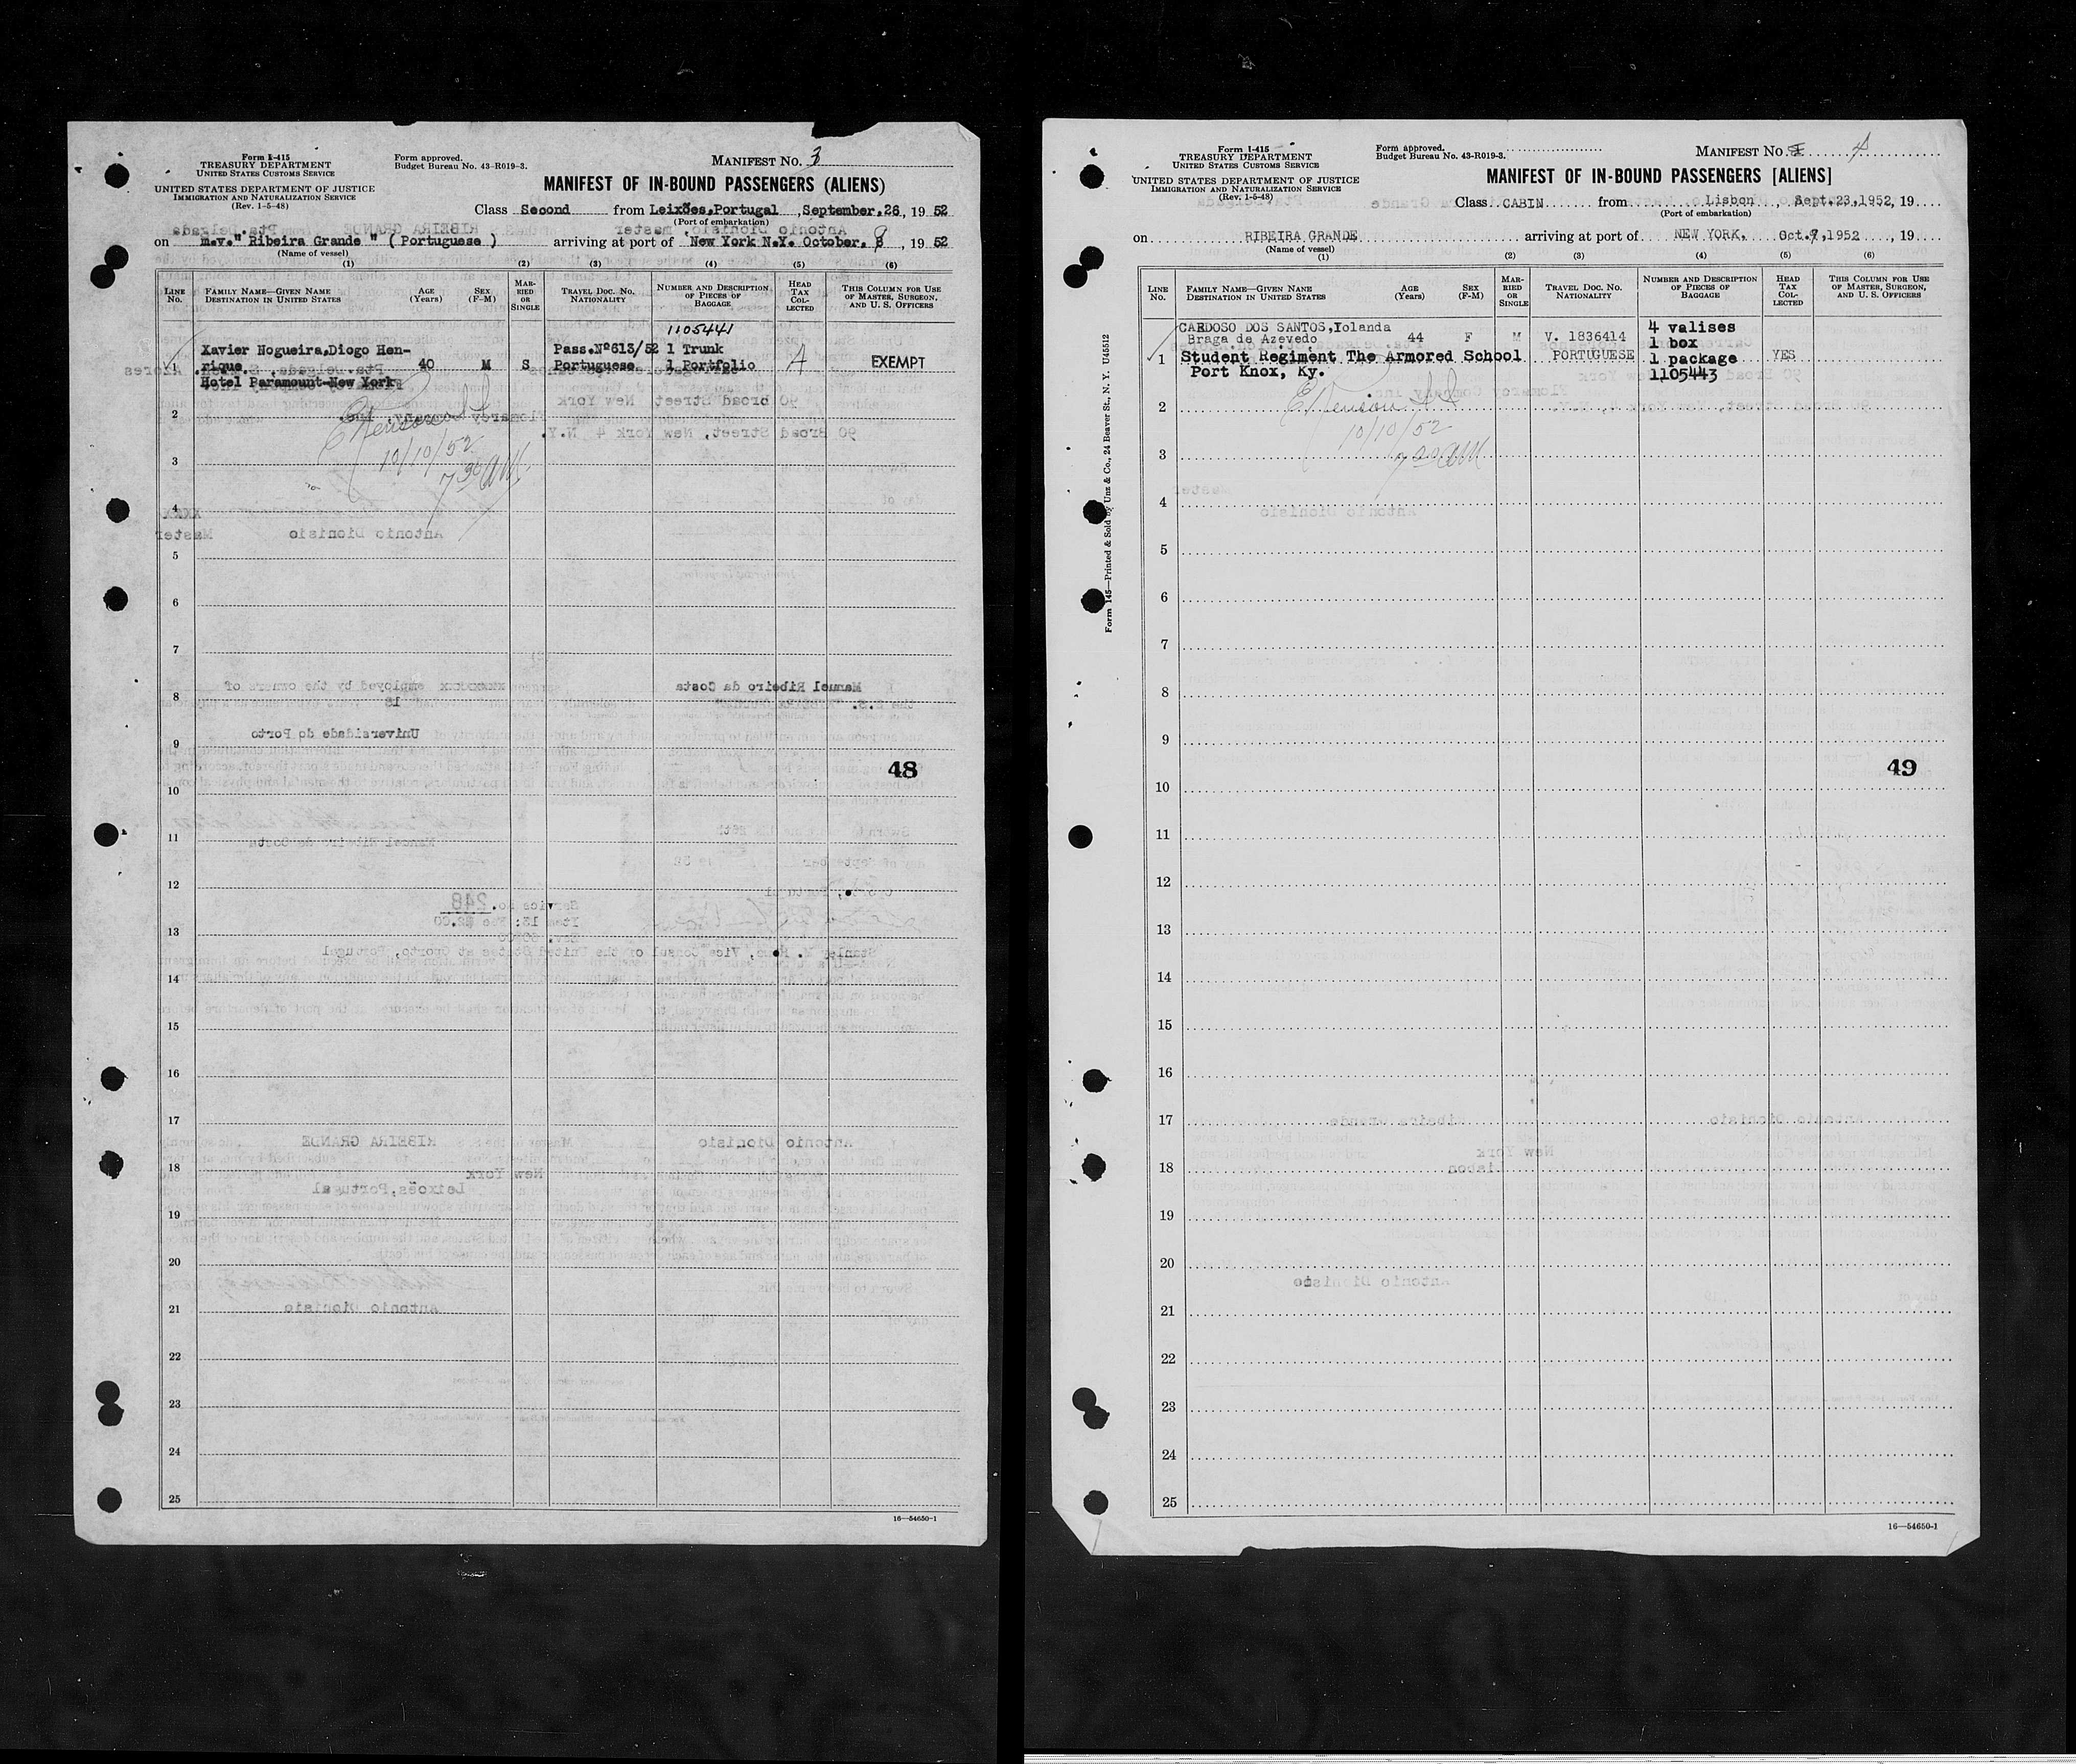 Form I-415
TREASURY DEPARTMENT
UNITED STATES CUSTOMS SERVICE
UNITED STATES DEPARTMENT OF JUSTICE
IMMIGRATION AND NATURALIZATION SERVICE
(Rev. 1-5-48)
Form approved.
Budget Bureau No. 43-R019-3.
MANIFEST No. 3
MANIFEST OF IN-BOUND PASSENGERS (ALIENS)
Class Second from Leixões,Portugal , September.26, 19 52
(Port of embarkation)
on m.v." Ribeira Grande " ( Portuguese ) arriving at port of New York N.Y. October. , 19 52
(Name of vessel)
(1) (2) (3) (4) (5) (6)
LINE No. FAMILY NAME—GIVEN NAME DESTINATION IN UNITED STATES AGE (Years) SEX (F-M) MARRIED OR SINGLE TRAVEL DOC. NO. NATIONALITY NUMBER AND DESCRIPTION OF PIECES OF BAGGAGE HEAD TAX COLLECTED THIS COLUMN FOR USE OF MASTER, SURGEON, AND U. S. OFFICERS
1105441
Xavier Nogueira,Diogo Hen- Pass.Nº613/52 1 Trunk
1 rique. 40 M S Portuguese 1 Portfolio EXEMPT
Hotel Paramount-New York
2
10/10/52
3
7 30 AM
4
5
6
7
8
9
48
10
11
12
13
14
15
16
17
18
19
20
21
22
23
24
25
16—54650-1
Form I-415
TREASURY DEPARTMENT
UNITED STATES CUSTOMS SERVICE
UNITED STATES DEPARTMENT OF JUSTICE
IMMIGRATION AND NATURALIZATION SERVICE
(Rev. 1-5-48)
Form approved.
Budget Bureau No. 43-R019-3.
MANIFEST No. 4
MANIFEST OF IN-BOUND PASSENGERS [ALIENS]
Class CABIN from Lisbon , Sept.23,1952, 19
(Port of embarkation)
on RIBEIRA GRANDE arriving at port of NEW YORK, Oct.9,1952 , 19
(Name of vessel)
(1) (2) (3) (4) (5) (6)
LINE No. FAMILY NAME—GIVEN NAME DESTINATION IN UNITED STATES AGE (Years) SEX (F-M) MARRIED OR SINGLE TRAVEL DOC. NO. NATIONALITY NUMBER AND DESCRIPTION OF PIECES OF BAGGAGE HEAD TAX COLLECTED THIS COLUMN FOR USE OF MASTER, SURGEON, AND U. S. OFFICERS
CARDOSO DOS SANTOS,Iolanda 4 valises
Braga de Azevedo 44 F M V. 1836414 1 box
1 Student Regiment The Armored School PORTUGUESE 1 package YES
Port Knox, Ky. 1105443
2
10/10/52
3
7 AM
4
5
6
7
8
9
49
10
11
12
13
14
15
16
17
18
19
20
21
22
23
24
25
16—54650-1
Form 145—Printed & Sold by Unz & Co., 24 Beaver St., N. Y. U45512